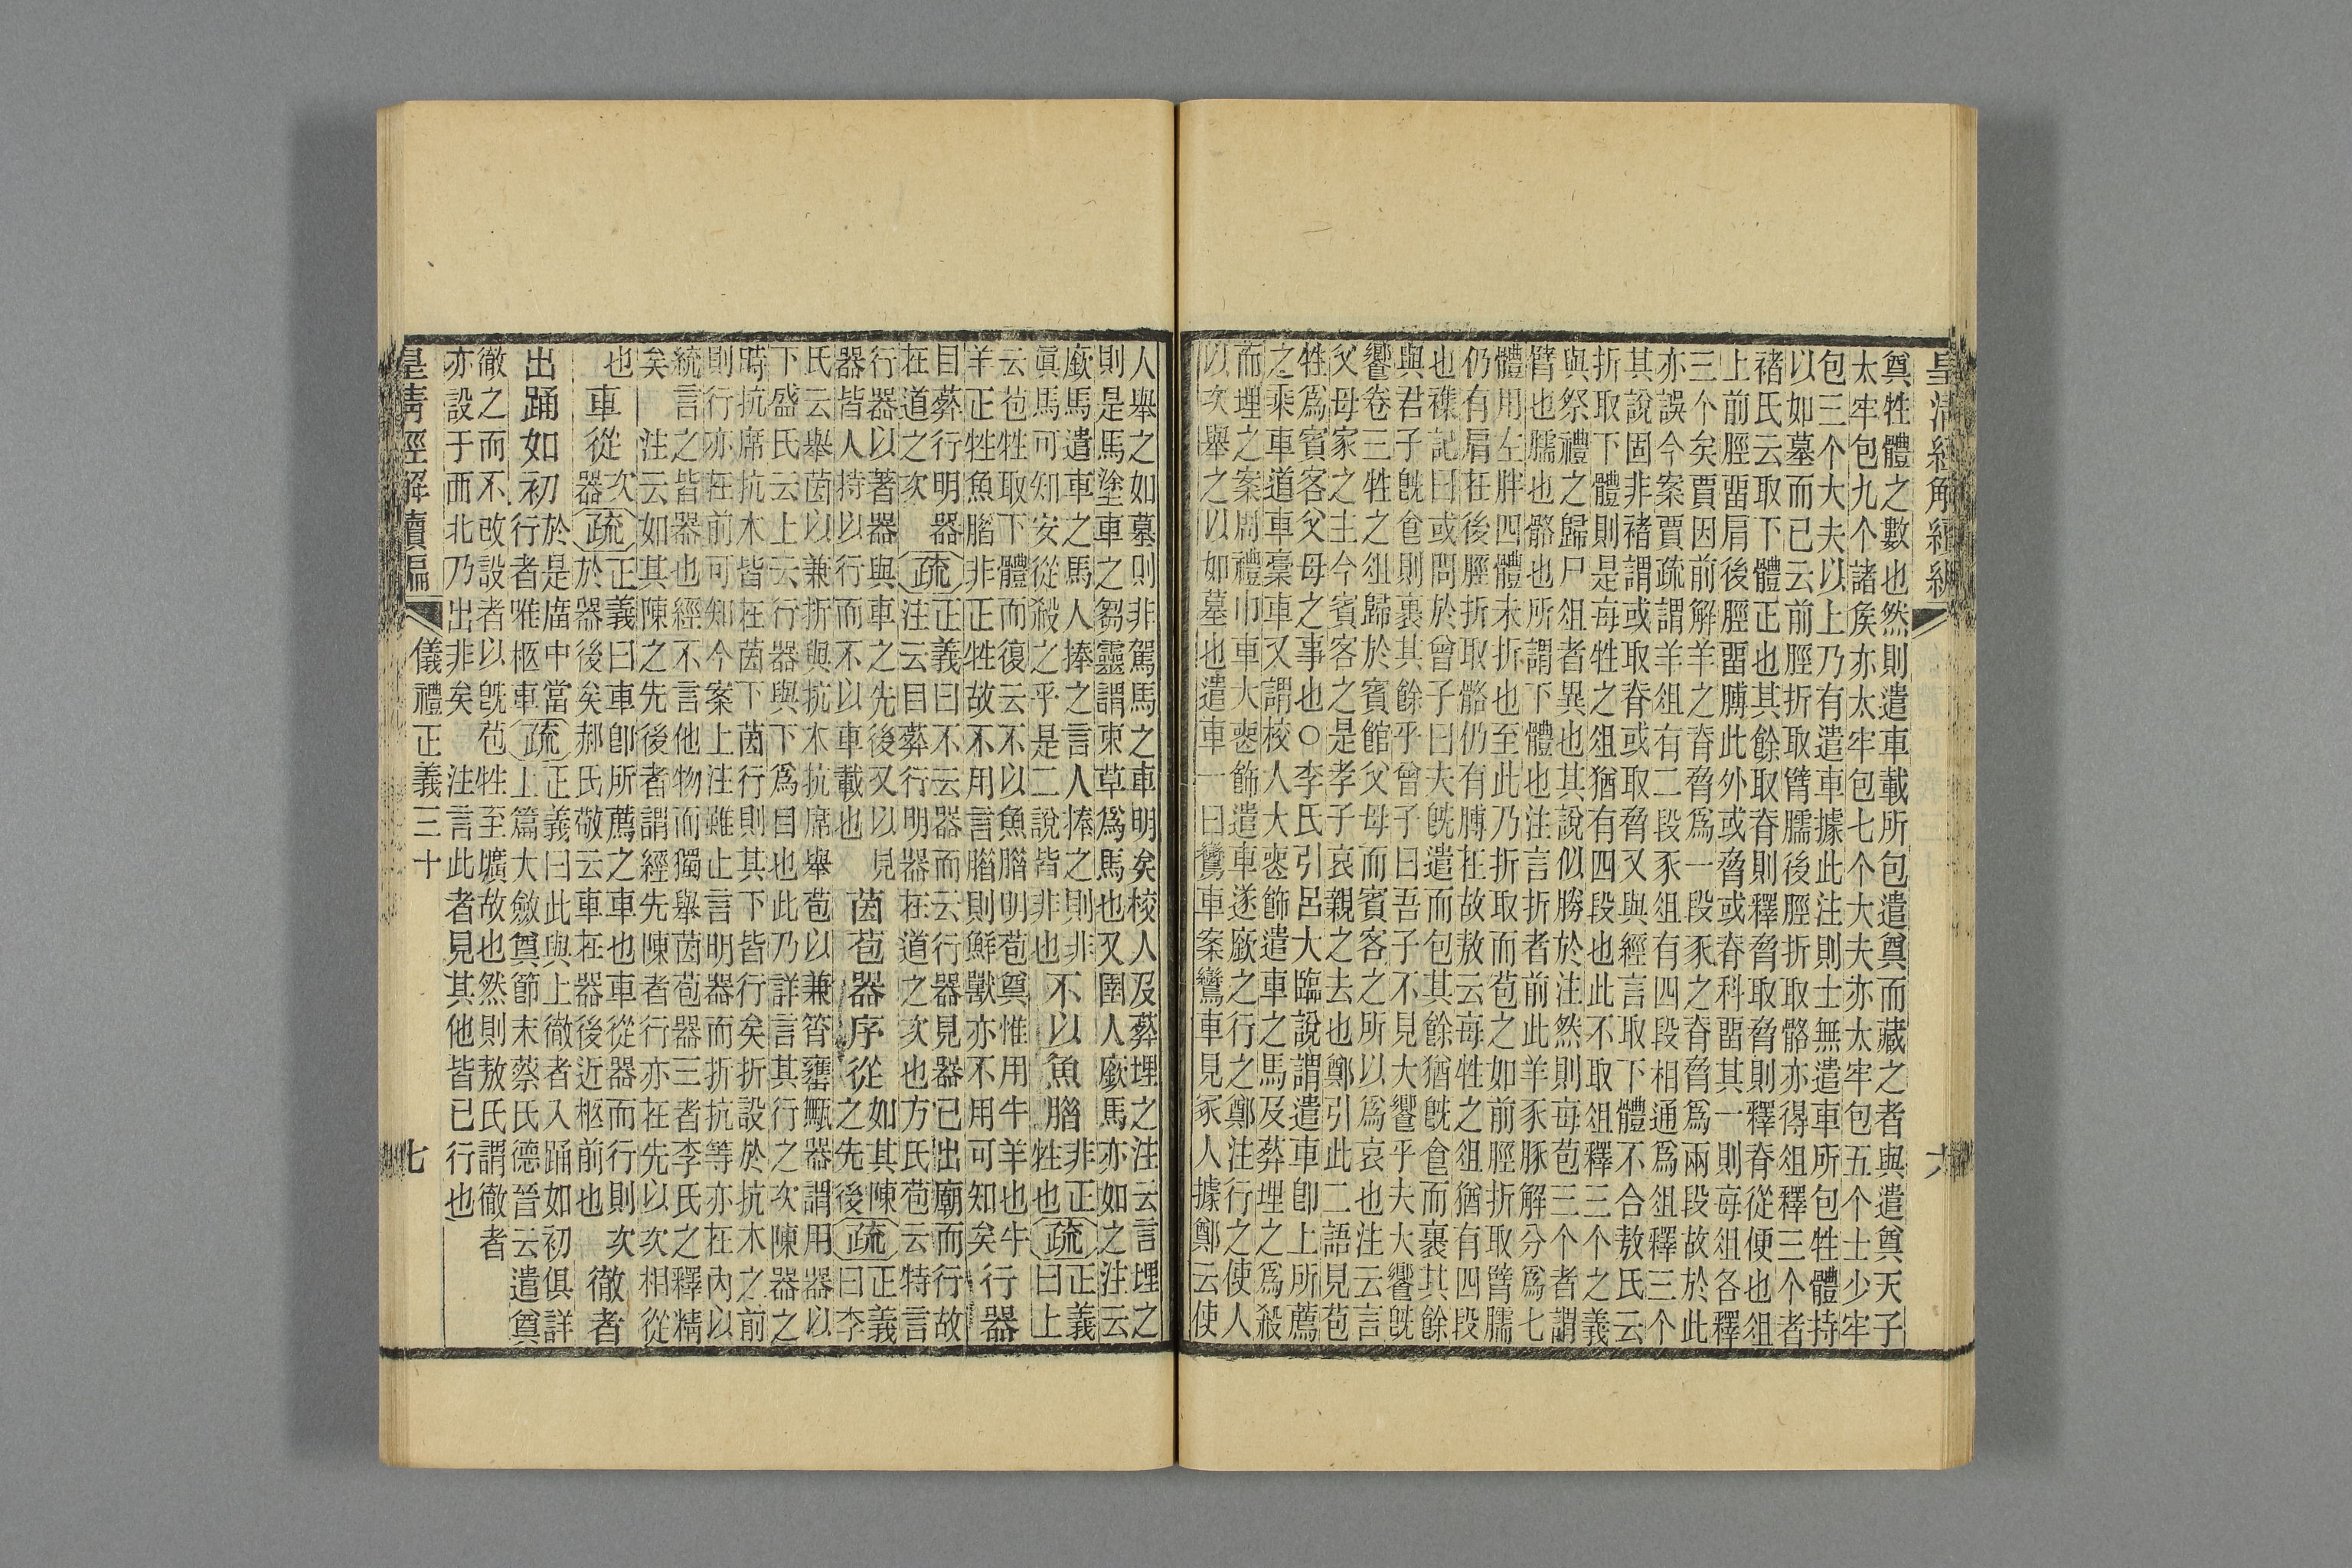 皇清經解續編　六
奠牲體之數也然則遣車載所包遣奠而藏之者與遣奠天子
太牢包九个諸矦亦太牢包七个大夫亦太牢包五个士少牢
包三个大夫以上乃有遣車據此注則士無遣車所包牲體持
以如墓而已云前脛折取臂臑後脛折取骼亦得俎釋三个者
褚氏云取下體正也其餘取脊則釋脅取脅則釋脊從便也俎
上前脛畱肩後脛畱膊此外或脅或脊科畱其一則每俎各釋
三个矣賈因前解羊之脊脅爲一段豕之脊脅爲兩段故於此
亦誤今案賈疏謂羊俎有二段豕俎有四段相通爲俎釋三个
其說固非褚謂或取脊或取脅又與經言取下體不合敖氏云
折取下體則是每牲之俎猶有四段也此不取俎釋三个之義
與祭禮之歸尸俎者異也其說似勝於注然則每苞三个者謂
臂也臑也骼也所謂下體也注言折者前此羊豕豚解分爲七
體用左胖四體未折也至此乃折取而苞之如前脛折取臂臑
仍有肩在後脛折取骼仍有膊在故敖云每牲之俎猶有四段
也襍記曰或問於曾子曰夫旣遣而包其餘猶旣食而裹其餘
與君子旣食則裹其餘乎曾子曰吾子不見大饗乎夫大饗旣
饗卷三牲之俎歸於賓館父母而賓客之所以爲哀也注云言
父母家之主今賓客之是孝子哀親之去也鄭引此二語見苞
牲爲賓客父母之事也○李氏引呂大臨說謂遣車卽上所薦
之乘車道車稾車又謂校人大喪飾遣車之馬及葬埋之爲殺
而埋之案周禮巾車大喪飾遣車遂廞之行之鄭注行之使人
以次舉之以如墓也遣車一曰鸞車案鸞車見冢人據鄭云使
人舉之如墓則非駕馬之車明矣校人及葬埋之注云言埋之
則是馬塗車之芻靈謂束草爲馬也又圉人廞馬亦如之注云
廞馬遣車之馬人捧之言人捧之則非
眞馬可知安從殺之乎是二說皆非也
不以魚腊
非正
牲也
疏
正義
曰上
云苞牲取下體而復云不以魚腊明苞奠惟用牛羊也牛
羊正牲魚腊非正牲故不用言腊則鮮獸亦不用可知矣
行器
目葬行明器
在道之次
疏
正義曰不云器而云行器見器已出廟而行故
注云目葬行明器在道之次也方氏苞云特言
行器以著器與車之先後又以見
器皆人持以行而不以車載也
茵苞器序從
如其陳
之先後
疏
正義
曰李
氏云舉茵以兼折與抗木抗席舉苞以兼筲罋甒器謂用器以
下盛氏云上云行器與下爲目也此乃詳言其行之次陳器之
時抗席抗木皆在茵下茵行則其下皆行矣折設於抗木之前
則行亦在前可知今案上注雖止言明器而折抗等亦在內以
統言之皆器也經不言他物而獨舉茵苞器三者李氏之釋精
矣　注云如其陳之先後者謂經先陳者行亦在先以次相從
也
車從
次
器
疏
正義曰車卽所薦之車也車從器而行則次
於器後矣郝氏敬云車在器後近柩前也
徹者
出踊如初
於是庿中當
行者唯柩車
疏
正義曰此與上徹者入踊如初俱詳
上篇大斂奠節末蔡氏德晉云遣奠
徹之而不改設者以旣苞牲至壙故也然則敖氏謂徹者
亦設于西北乃出非矣　注言此者見其他皆已行也
皇清經解續編　儀禮正義三十　七